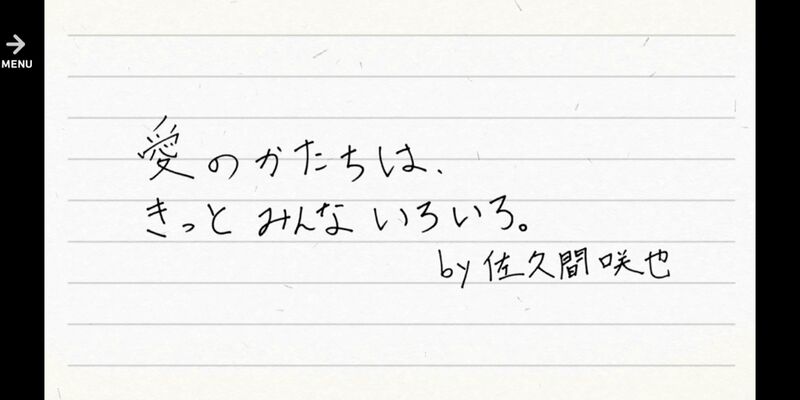 MENU
愛のかたちは、
きっとみんないろいろ。
by 佐久間咲也